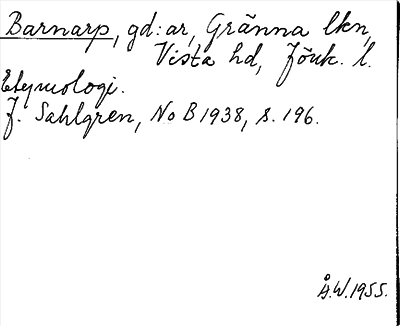 Barnarp, gd:ar, Gränna lkn,
Vista hd, Jönk. l.
Etymologi.
J. Sahlgren, No B 1938, s. 196.
Å.W. 1955.